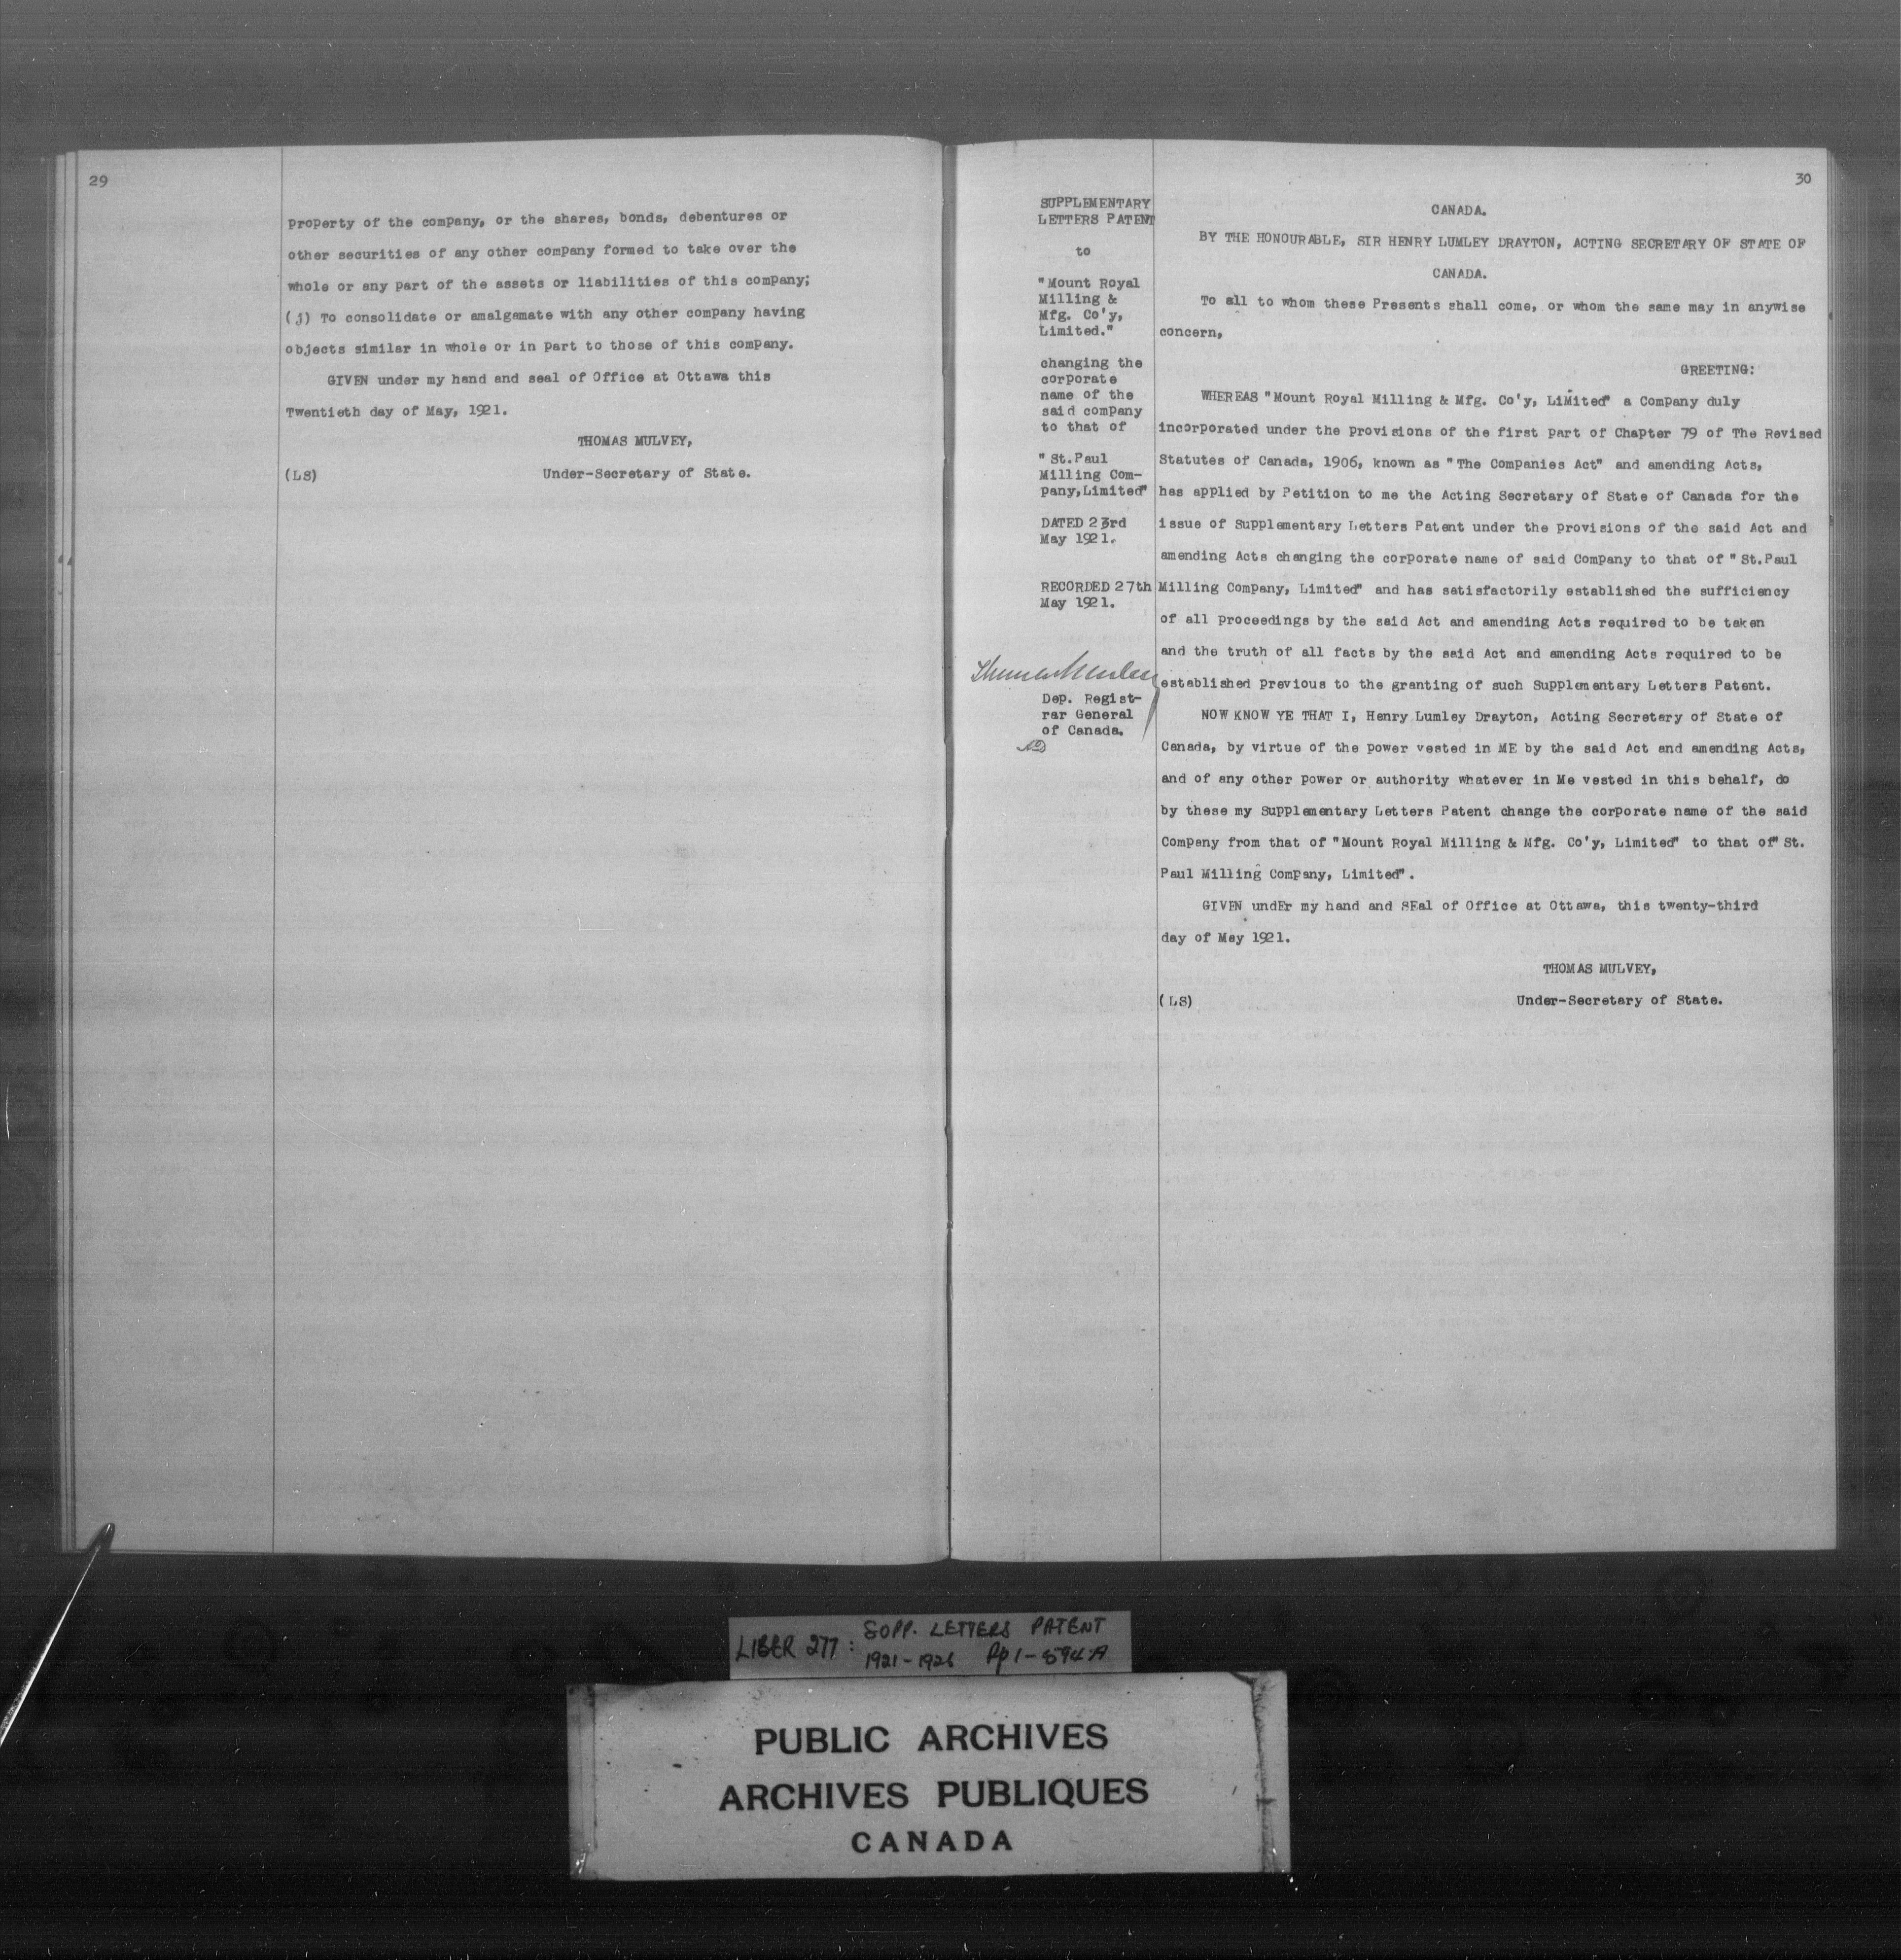 29
Property of the company, or the shares, bonds, debentures or
other securities of any other company formed to take over the
whole or any part of the assets or liabilities of this company;
(j) To consolidate or amalgamate with any other company having
objects similar in whole or in part to those of this company.
GIVEN under my hand and seal of Office at Ottawa this
Twentieth day of May, 1921.
THOMAS MULVEY,
(LS) Under-Secretary of State.
30
SUPPLEMENTARY
LETTERS PATENT
to
"Mount Royal
Milling &
Mfg. Co'y,
Limited."
changing the
corporate
name of the
said company
to that of
"St.Paul
Milling Com-
pany,Limited"
DATED 23rd
May 1921.
RECORDED 27th
May 1921.
Thomas Mulvey
Dep. Regist-
rar General
of Canada.
CANADA.
BY THE HONOURABLE, SIR HENRY LUMLEY DRAYTON, ACTING SECRETARY OF STATE OF
CANADA.
To all to whom these Presents shall come, or whom the same may in anywise
concern,
GREETING:
WHEREAS "Mount Royal Milling & Mfg. Co'y, LiMited" a Company duly
incorporated under the provisions of the first part of Chapter 79 of The Revised
Statutes of Canada, 1906, known as "The Companies Act" and amending Acts,
has applied by Petition to me the Acting Secretary of State of Canada for the
issue of Supplementary Letters Patent under the provisions of the said Act and
amending Acts changing the corporate name of said Company to that of "St.Paul
Milling Company, Limited" and has satisfactorily established the sufficiency
of all proceedings by the said Act and amending Acts required to be taken
and the truth of all facts by the said Act and amending Acts required to be
established previous to the granting of such Supplementary Letters Patent.
NOW KNOW YE THAT I, Henry Lumley Drayton, Acting Secretary of State of
Canada, by virtue of the power vested in ME by the said Act and amending Acts,
and of any other power or authority whatever in Me vested in this behalf, do
by these my Supplementary Letters Patent change the corporate name of the said
Company from that of "Mount Royal Milling & Mfg. Co'y, Limited" to that of "St.
Paul Milling Company, Limited".
GIVEN undEr my hand and SEal of Office at Ottawa, this twenty-third
day of May 1921.
THOMAS MULVEY,
(LS) Under-Secretary of State.
LIBER 277: SUPP. LETTERS PATENT
1921-1926 Pp 1-594A
PUBLIC ARCHIVES
ARCHIVES PUBLIQUES
CANADA